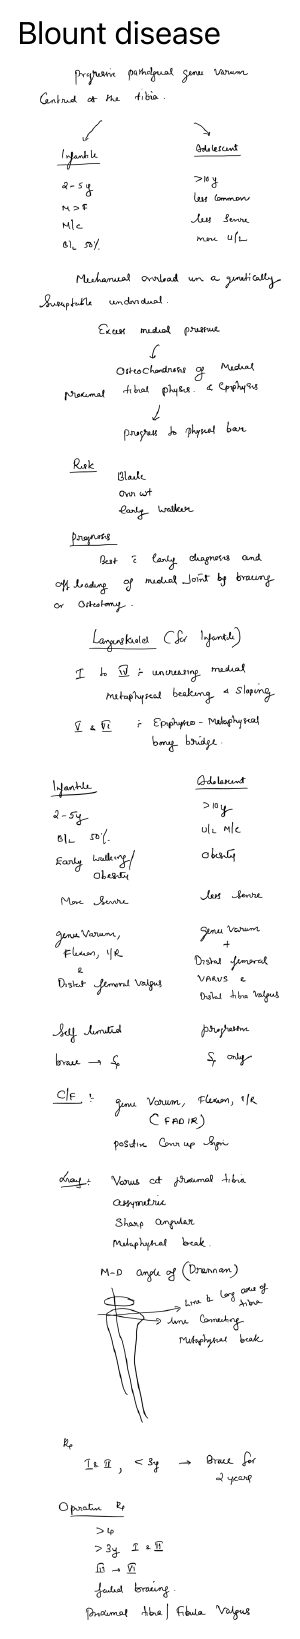 Blount disease
Progressive pathological genu Varum
Centred at the tibia.
Infantile Adolescent
2-5y >10y
M>F less common
M/c less severe
B/L 50% more U/L
Mechanical overload in a genetically
Susceptible individual.
Excess medial pressure
↓
Osteochondrosis of Medial
Proximal tibial physis & Epiphysis
↓
progress to physeal bar
Risk
Black
over wt
Early walker
Prognosis
Best c̄ Early diagnosis and
off loading of medial Joint by bracing
or Osteotomy.
Langenskiold (for Infantile)
I to IV :- increasing medial
Metaphyseal beaking & sloping
V & VI :- Epiphyseo - Metaphyseal
bony bridge.
Infantile Adolescent
2-5y >10y
B/L 50%. U/L M/c
Early walking/ Obesity
Obesity
More Severe less severe
genu Varum, genu Varum
Flexion, I/R +
& Distal femoral
Distal femoral Valgus VARUS &
Distal tibia Valgus
Self limited progressive
brace → Sx Sx only
C/F :- genu Varum, Flexion, I/R
(FADIR)
positive Cover up sign
Xray:- Varus at proximal tibia
assymetric
Sharp angular
Metaphyseal beak.
M-D angle of (Drennan)
→ Line ⊥ Long axis of
tibia
→ line Connecting
Metaphyseal beak
Rx
I & II, <3y → Brace for
2 years
Operative Rx
>4
>3y I & II
III → VI
failed bracing.
Proximal tibia / Fibula Valgus